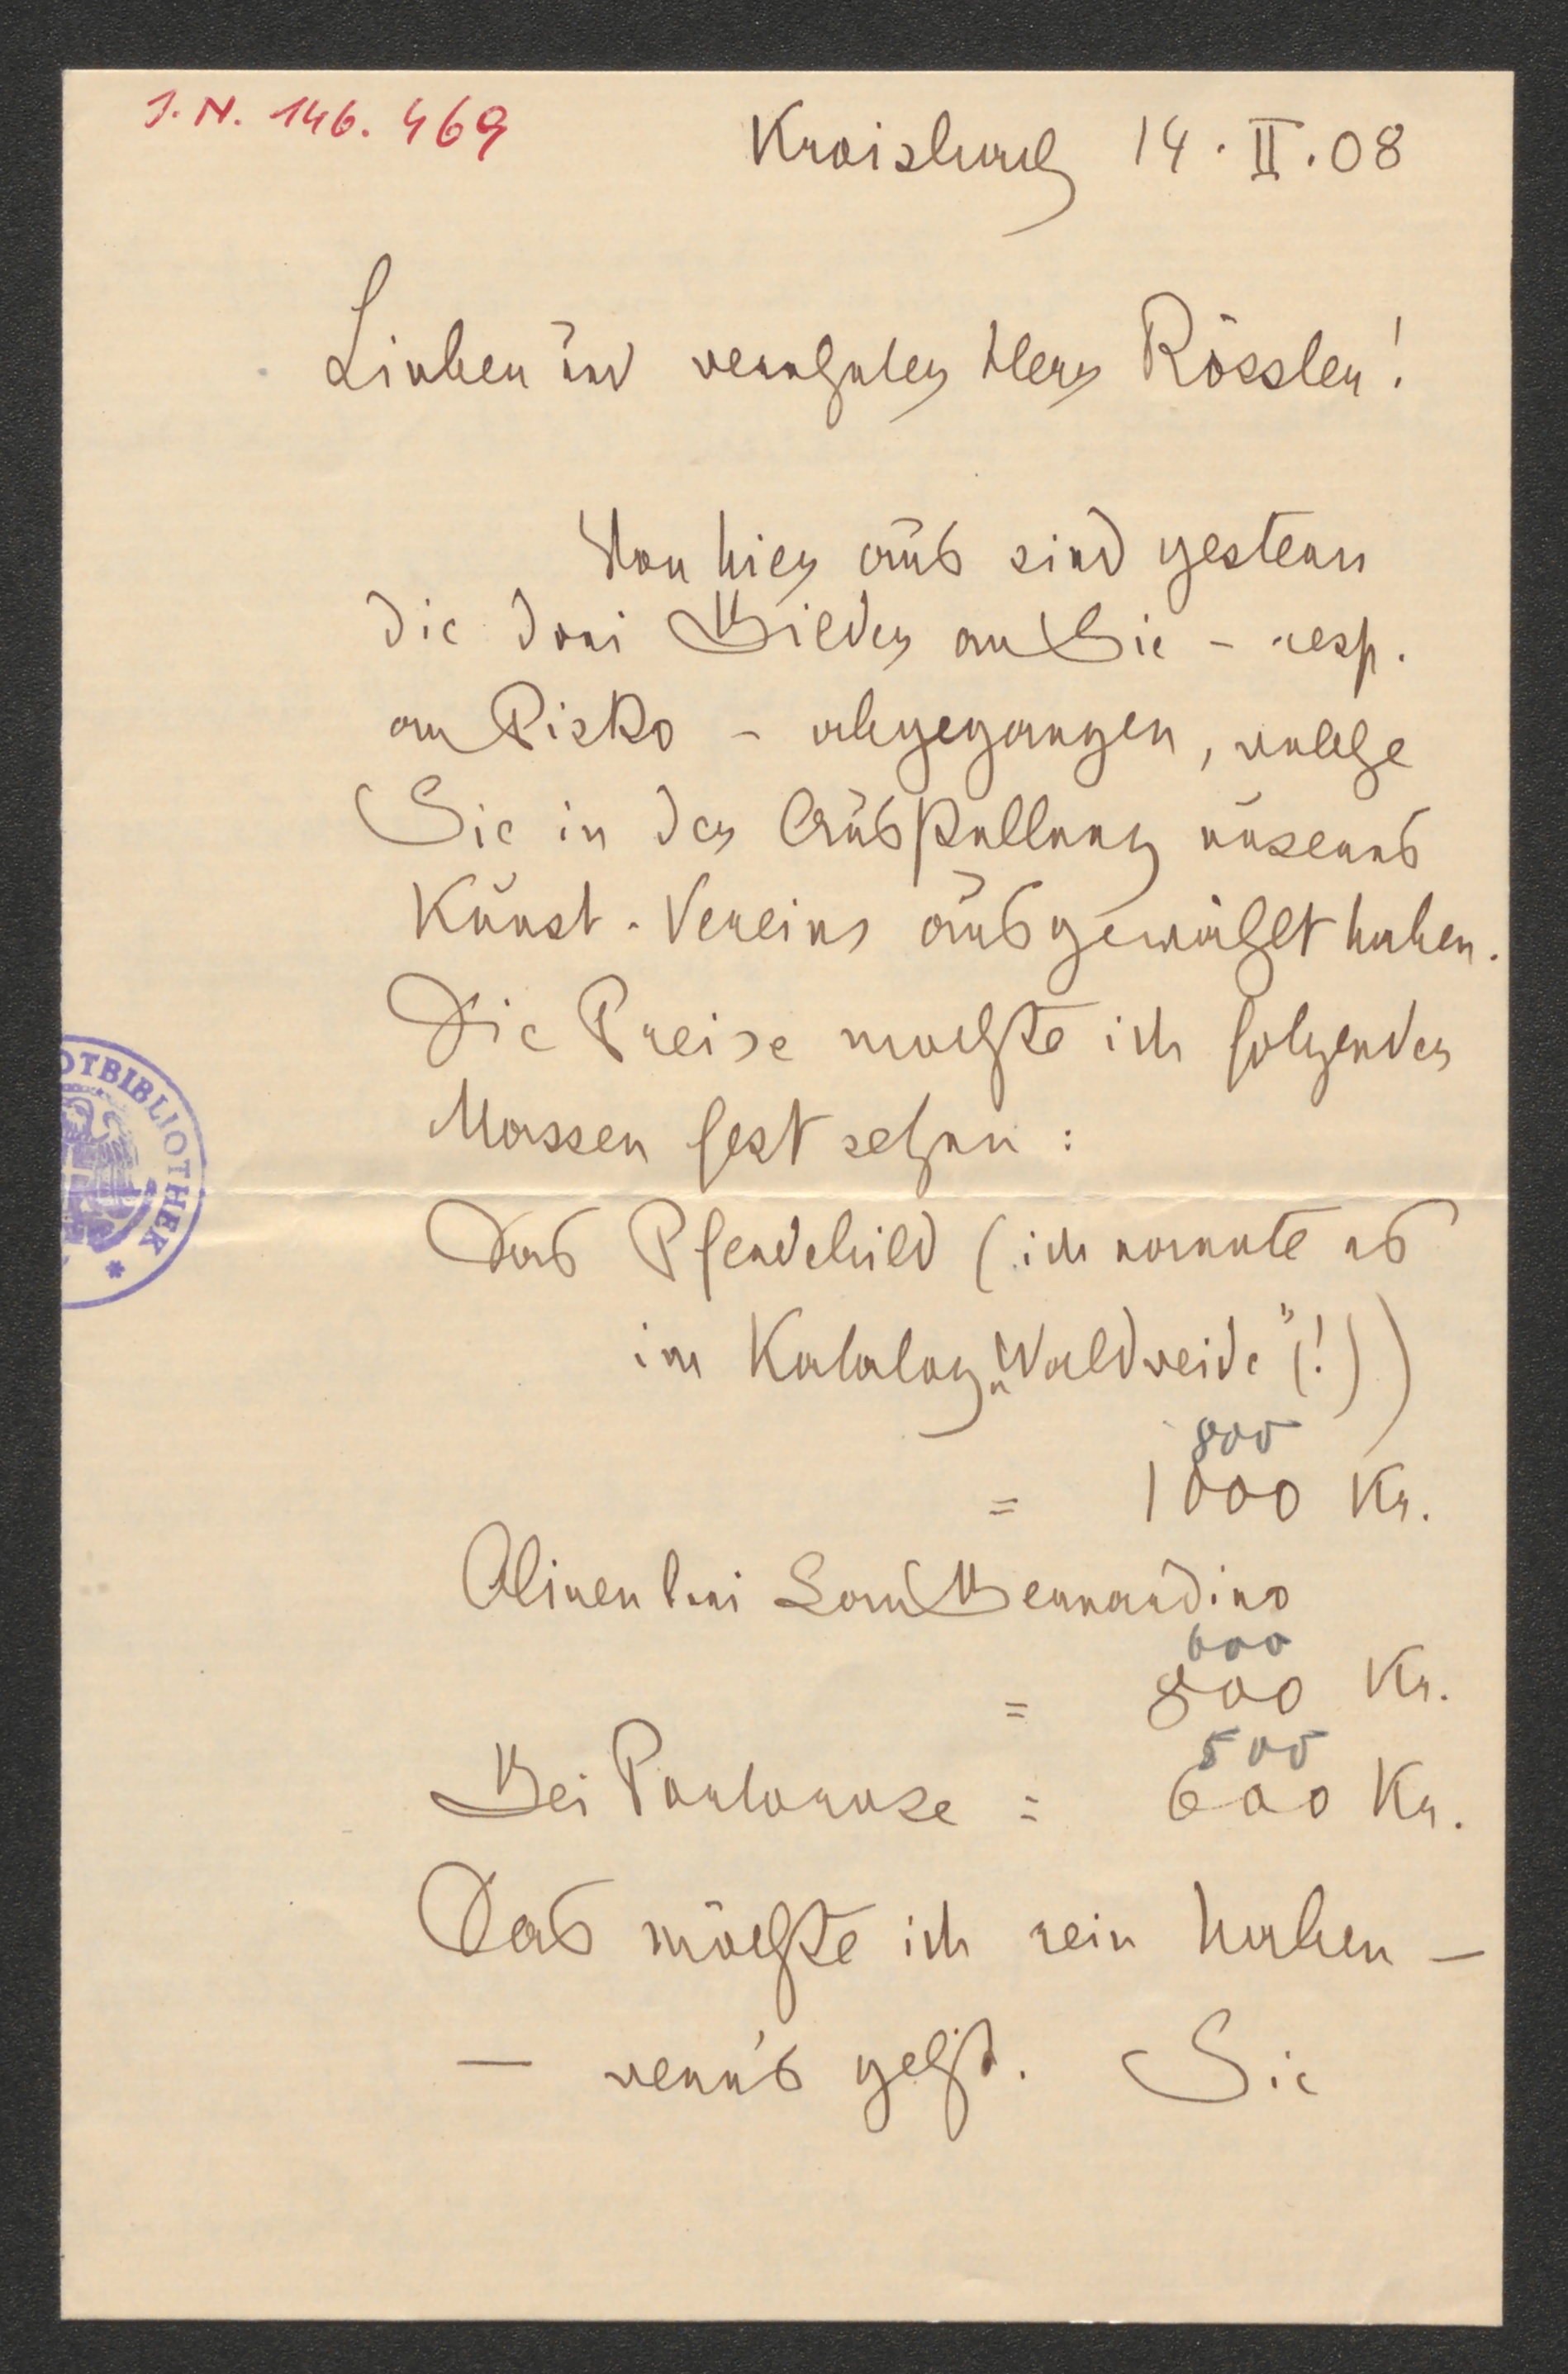 J.N. 146.469
Kroisbach 14.II.08
Lieber und verehrter Herr Rössler!
Von hier aus sind gestern
die drei Bilder an Sie - resp.
an Pisko - abgegangen, welche
Sie in der Ausstellung unseres
Kunst-Vereins ausgewählt haben.
Die Preise möchte ich folgender
Massen fest setzen:
Das Pferdebild (ich nannte es
im Katalog „Waldweide"(!))
800
= 1000 Kr.
Alinen bei San Bernardino
600
= 800 Kr.
500
Bei Pontonose = 600 Kr.
Das möchte ich rein haben -
- wenn's geht. Sie
OTBIBLIOTHEK *